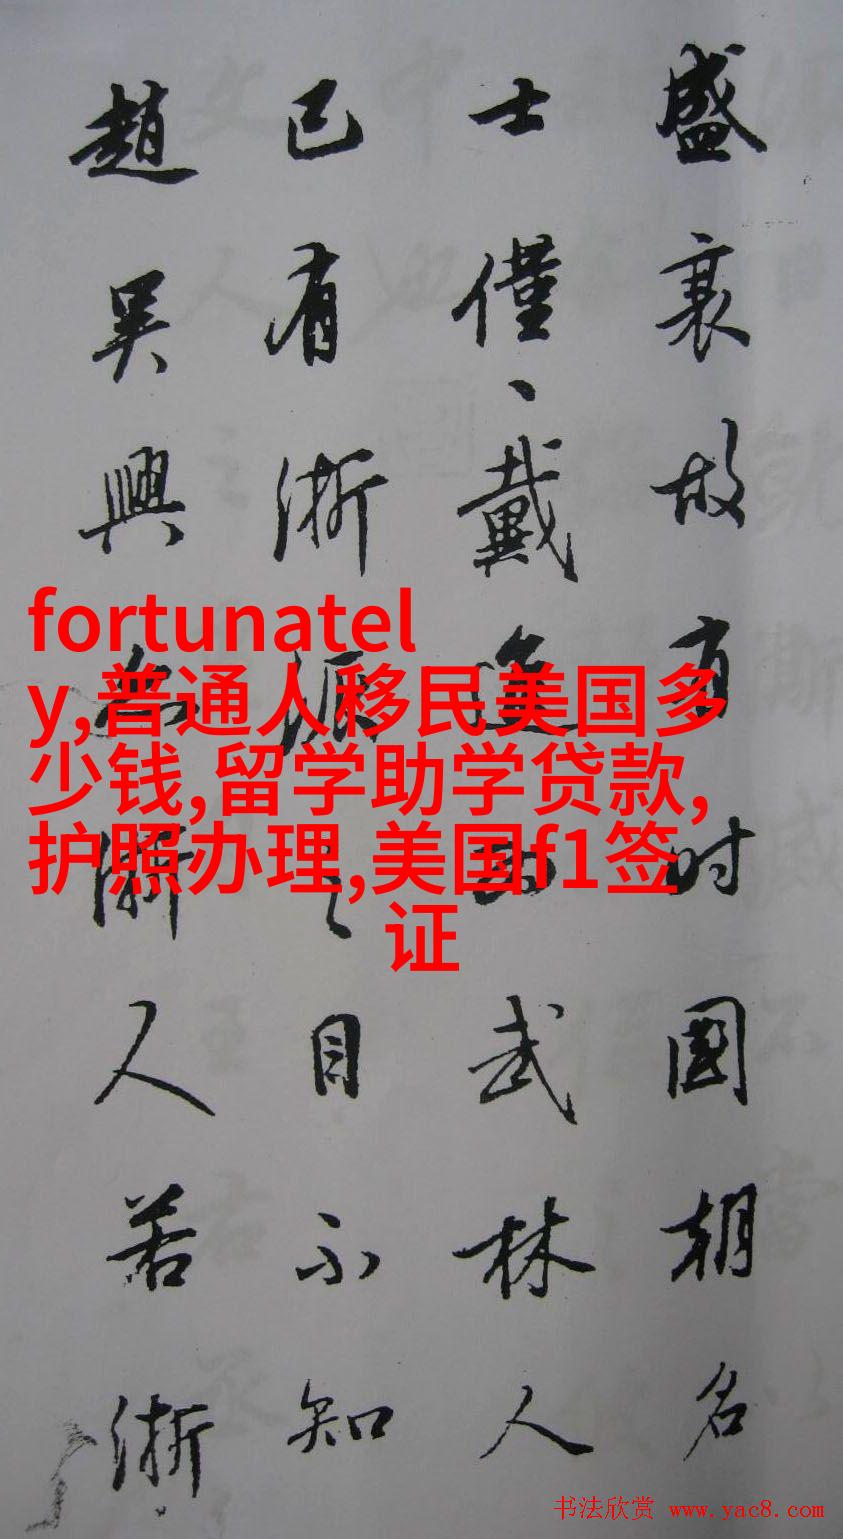 盛衰故有时國朝名
士僅、戴進武林人
已有浙派之目不知
趙吳興亦浙人若浙
fortunatel
y,普通人移民美国多
少钱,留学助学贷款,
护照办理,美国f1签
证
书法欣赏 www.yac8.com